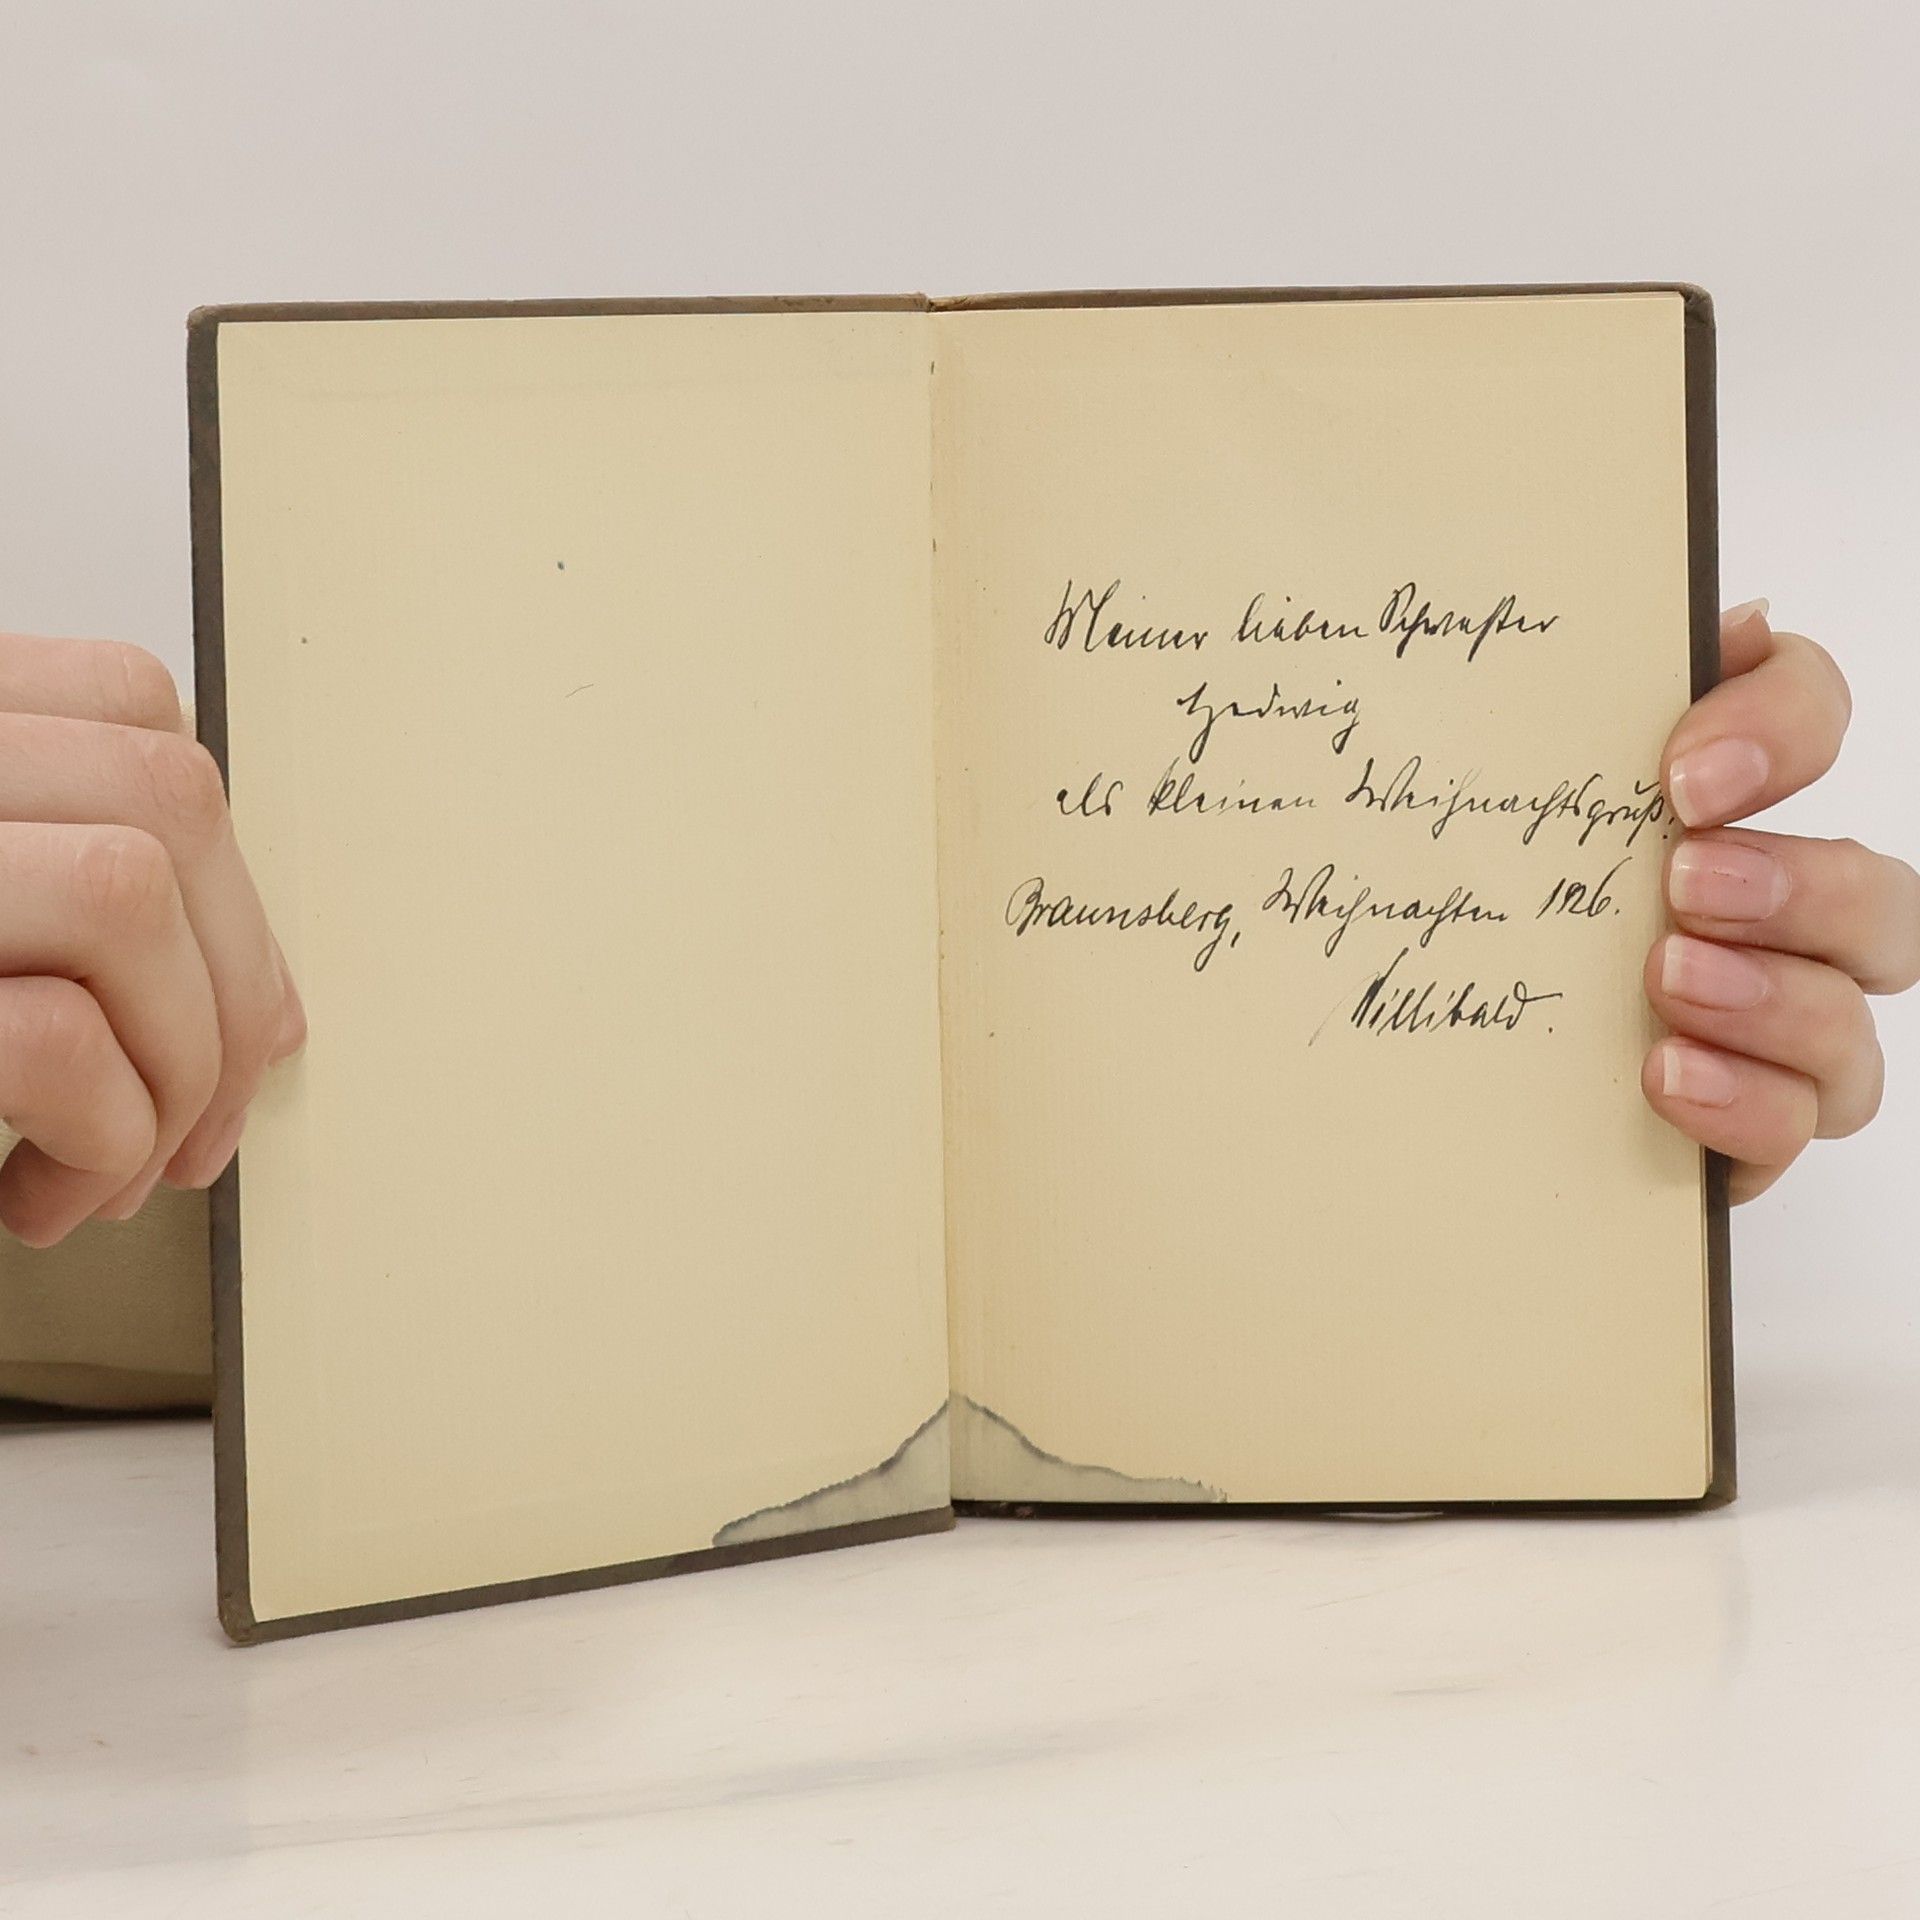 Meiner lieben Schwester
Hedwig
als kleinen Weihnachtsgruß.
Braunsberg, Weihnachten 1926.
Willibald.